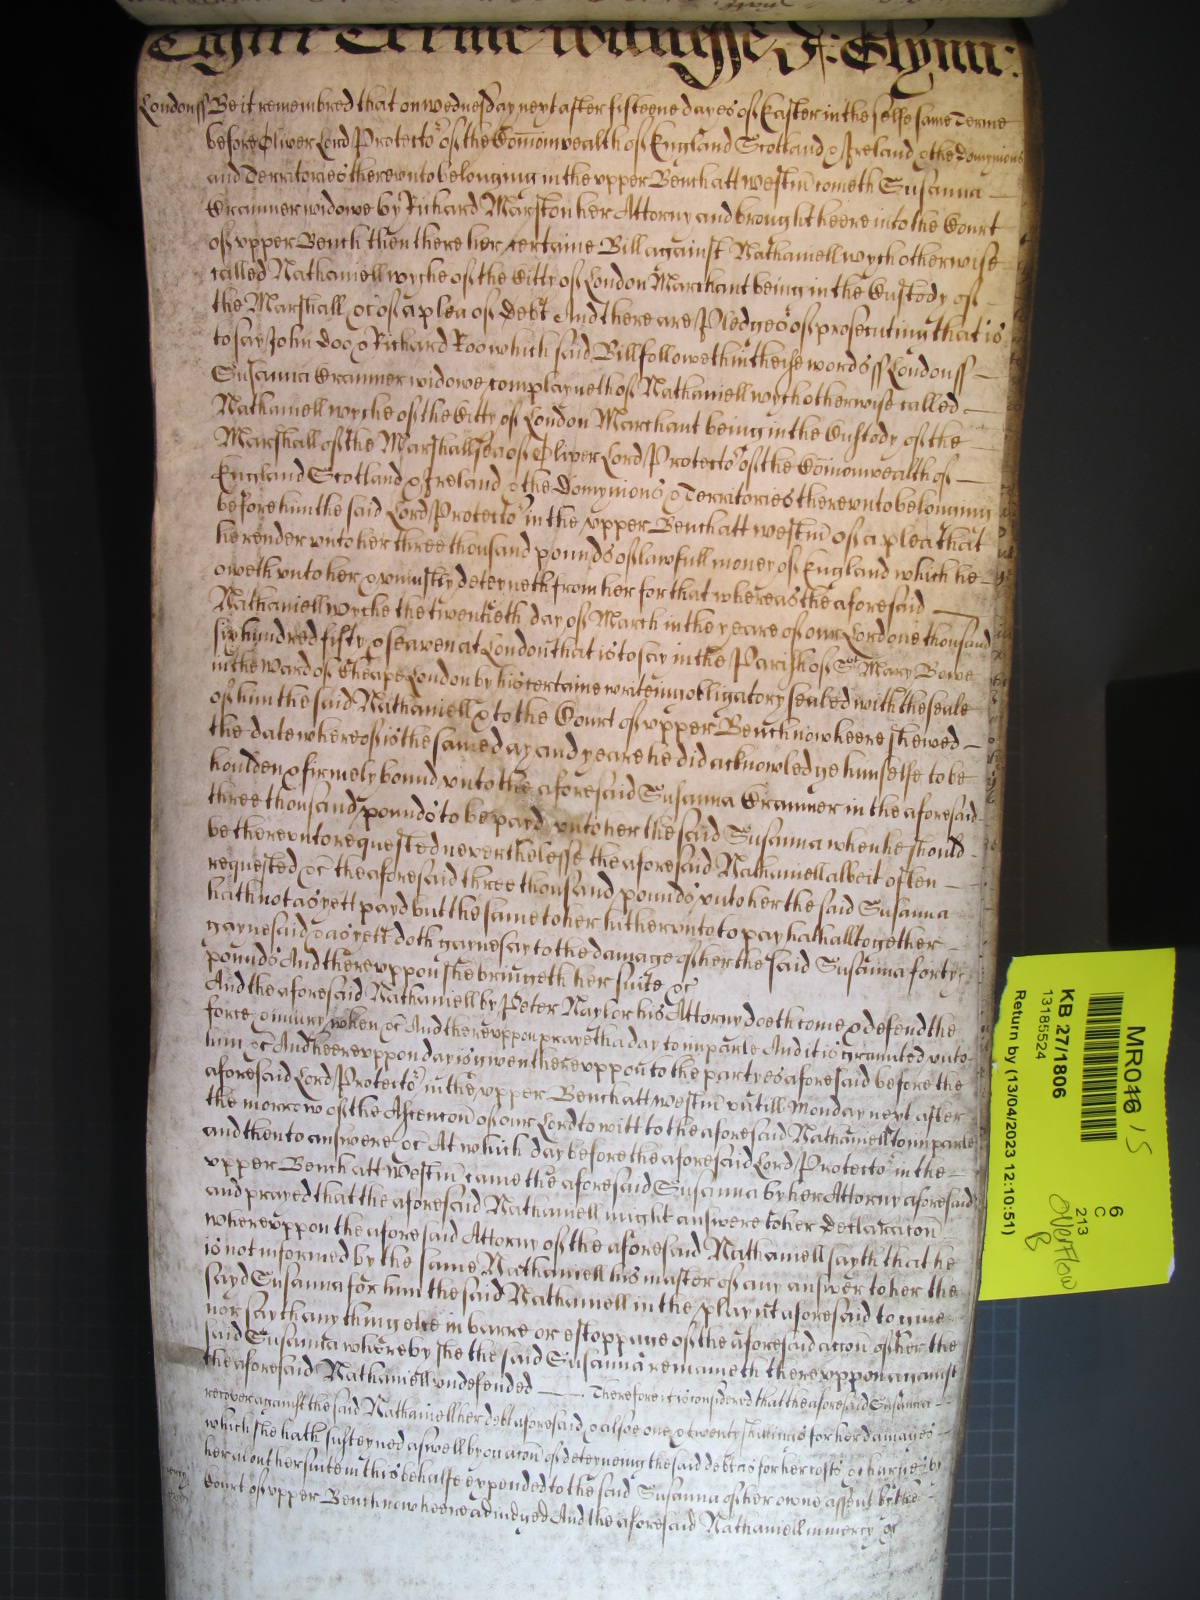 Easter Terme witnesse J: Glynn:
Londonss Be it remembred that on wednesday next after fifteene dayes of Easter in the selfe same Terme
before Oliver Lord Protector of the Com̄onwealth of England Scotland & Ireland & the Domynions
and Territories therevnto belonging in the vpper Bench att Westm̄ cometh Susanna
Cranmer widowe by Richard Marston her Attorny and brought heere into the Court
of vpper Bench then there her certaine Bill against Nathaniell wych otherwise
called Nathaniell wyche of the Citty of London Marchant being in the Custody of
the Marshall &c of a plea of debt And there are Pledges of prosecuting that is
to say John Doo & Richard Roo which said Bill followeth in theise words ss Londonss
Susanna Cranmer widowe complayneth of Nathaniell wych otherwise called
Nathaniell wyche of the Citty of London Marchant being in the Custody of the
Marshall of the Marshallsea of Oliver Lord Protector of the Com̄onwealth of
England Scotland & Ireland & the Domynions & Territories therevnto belonging
before him the said Lord Protector in the vpper Bench att westm̄ of a plea that
he render vnto her three thousand pounds of lawfull money of England which he
oweth vnto her & vniustly deteyneth from her for that whereas the aforesaid
Nathaniell wyche the twentieth day of March in the yeare of our Lord one thousand
six hundred fifty & seaven at London that is to say in the Parish of St Mary Bowe
in the Ward of Cheape London by his certaine writeing obligatory sealed with the seale
of him the said Nathaniell & to the Court of vpper Bench now heere shewed
the date whereof is the same day and yeare he did acknowledge himselfe to be
houlden & firmely bound vnto the aforesaid Susanna Cranmer in the aforesaid
three thousand pounds to be payd vnto her the said Susanna when he should
be therevnto requested neverthelesse the aforesaid Nathaniell albeit often
requested &c the aforesaid three thousand pounds vnto her the said Susanna
hath not as yett payd but the same to her hitherunto to pay hath alltogether
gaynesaid & as yett doth gaynesay to the damage of her the said Susanna forty
pounds And therevppon she bringeth her suite &c
And the aforesaid Nathaniell by Peter Naylor his Attorny doeth come & defend the
force & iniury when &c And therevppon prayeth a day to imparle And it is graunted vnto
him &c And heerevppon day is given therevppon to the partyes aforesaid before the
aforesaid Lord Protector in the vpper Bench att westm̄ vntill Monday next after
the morrow of the Ascencon̄ of our Lord to witt to the aforesaid Nathaniell to imparle
and then to answere &c At which day before the aforesaid Lord Protector in the
vpper Bench att westm̄ came the aforesaid Susanna by her Attorny aforesaid
and prayed that the aforesaid Nathaniell might answere to her Declaracon̄
wherevppon the aforesaid Attorny of the aforesaid Nathaniell sayth that he
is not informed by the same Nathaniell his master of any answer to her the
sayd Susanna for him the said Nathaniell in the playnt aforesaid to give
nor say th any thing else in barre or estoppage of the aforesaid accon̄ of her the
said Susanna whereby she the said Susanna remaineth therevppon against
the aforesaid Nathaniell vndefended Therefore it is considered that the aforesaid Susanna
recover against the said Nathaniell her debt aforesaid & alsoe one & twenty shillings for her damages
which she hath susteyned aswell by occacon̄ of deteyneing the said debt as for her costs & charges by
her about her suite in this behalfe expended to the said Susanna of her owne assent by the
Court of vpper Bench now heere adiudged And the aforesaid Nathaniell in mercy &c
MR046 15
KB 27/1806
13185524
Return by (13/04/2023 12:10:51)
6
C
213
overflow
B